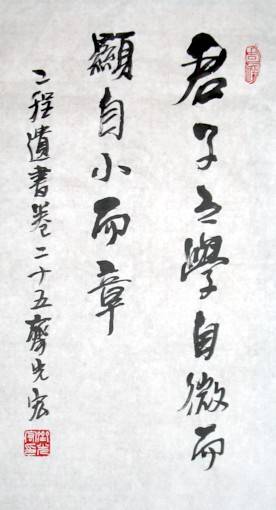 君子之學自微而
顯自小而章
二程遺書卷二十五齊先宏